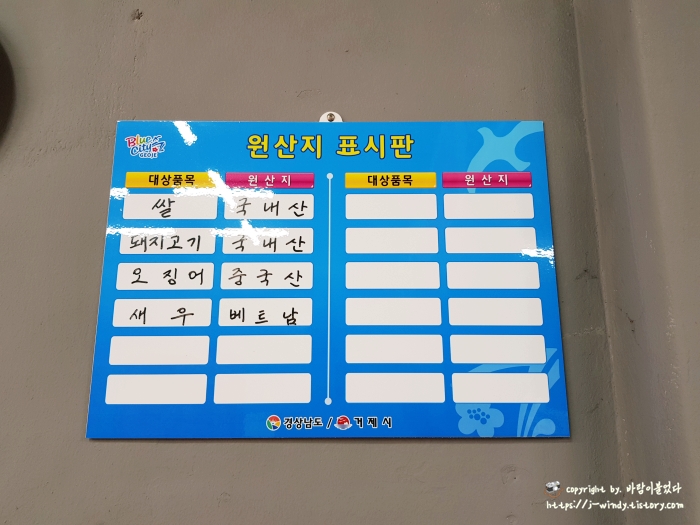 Blue City GEOJE
원산지 표시판
대상품목 원산지 대상품목 원산지
쌀 국내산
돼지고기 국내산
오징어 중국산
새우 베트남
경상남도 / 거제시
copyright by. 바람이불었다
https://j-windy.tistory.com